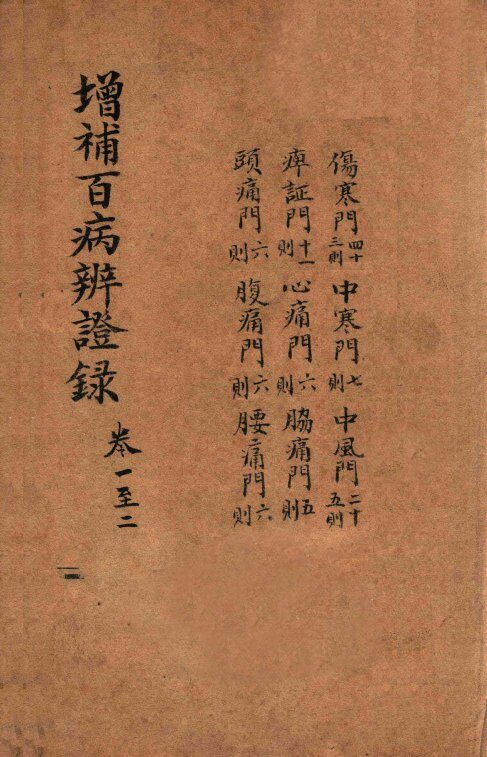 傷寒門四十三則 中寒門七則 中風門二十五則
痺証門十一則 心痛門六則 脇痛門五則
頭痛門六則 腹痛門六則 腰痛門六則
增補百病辨證録 卷一至二